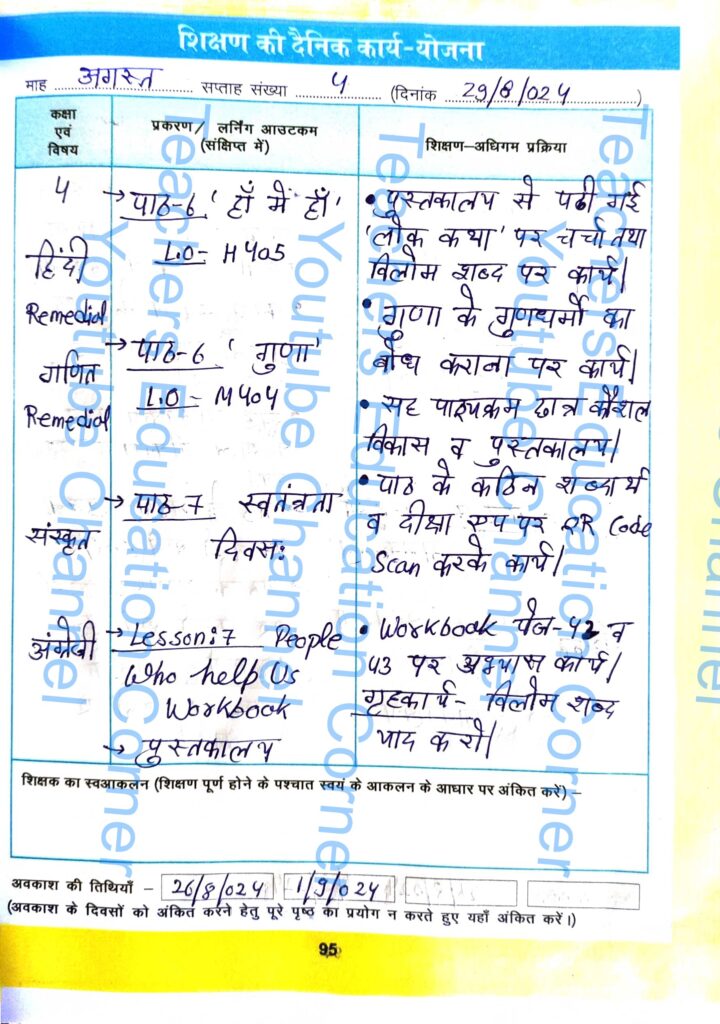 शिक्षण की दैनिक कार्य-योजना
माह अगस्त सप्ताह संख्या 4 (दिनांक 29/8/024)
कक्षा एवं विषय
प्रकरण/ लर्निंग आउटकम (संक्षिप्त में)
शिक्षण–अधिगम प्रक्रिया
4
हिंदी
Remedial
गणित
Remedial
संस्कृत
अंग्रेजी
→ पाठ-6 'हाँ में हाँ'
L.O- H405
→ पाठ-6 'गुणा'
L.O - M404
→ पाठ-7 स्वतंत्रता
दिवस:
→ Lesson:7 People
Who help Us
Workbook
→ पुस्तकालय
• पुस्तकालय से पढी गई
'लोक कथा' पर चर्चा तथा
विलोम शब्द पर कार्य|
• गुणा के गुणधर्मो का
बोध कराना पर कार्य|
• सह पाठ्यक्रम छात्र कौशल
विकास व पुस्तकालय|
• पाठ के कठिन शब्दार्थ
व दीक्षा एप पर QR Code
Scan करके कार्य|
• Workbook पेज-42 व
43 पर अभ्यास कार्य|
गृहकार्य- विलोम शब्द
याद करो|
शिक्षक का स्वआकलन (शिक्षण पूर्ण होने के पश्चात स्वयं के आकलन के आधार पर अंकित करें) –
अवकाश की तिथियाँ – 26/8/024 1/9/024
(अवकाश के दिवसों को अंकित करने हेतु पूरे पृष्ठ का प्रयोग न करते हुए यहाँ अंकित करें।)
95
Teachers Education Corner
Youtube Channel
Teachers Education Corner
Youtube Channel
Teachers Education Corner
Youtube Channel